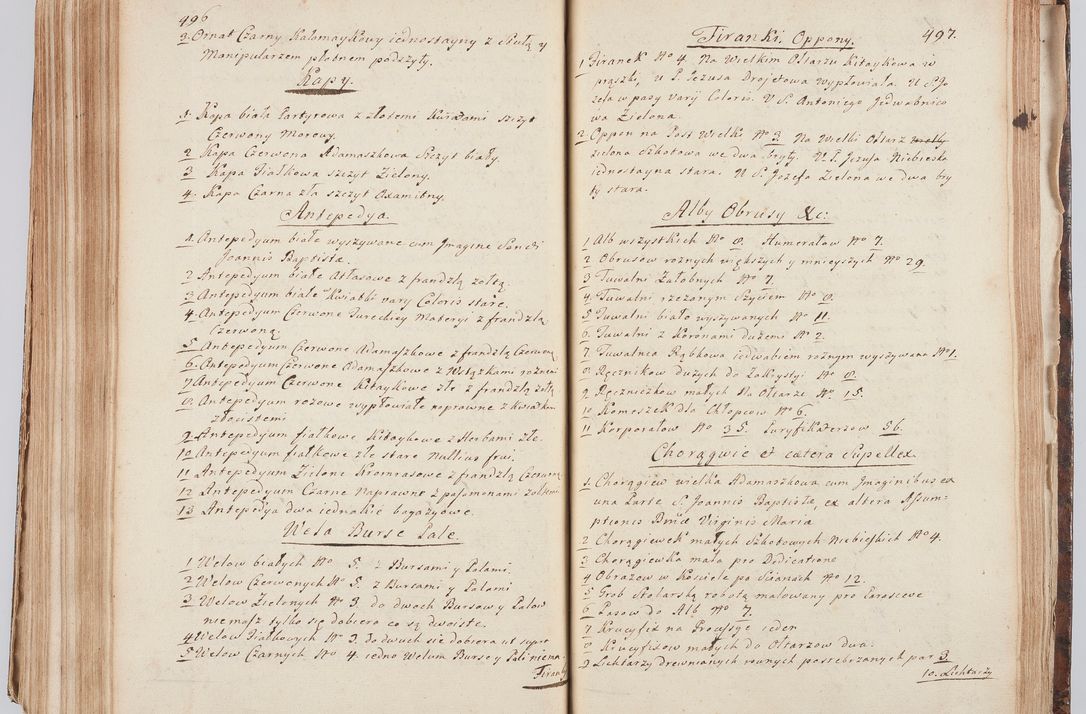 496
3. Ornat Czarny Kalomaykowy iednostayny z Stułą y
Manipularzem płotnem podszyty.
Kapy.
1. Kapa biała Partyrowa z złotemi Kwiatami szczyt
Czerwony Morowy.
2 Kapa Czerwona Adamaszkowa Szczyt biały.
3 Kapa Fiałkowa szczyt Zielony.
4. Kapa Czarna zła szczyt Oxamitny.
Antepedya.
1. Antepedyum białe wyszywane cum Imagine Sancti
Joannis Baptistæ.
2 Antepedyum białe Atłasowe z frandzlą zołtą.
3 Antepedyum białe Kwiatki vary Coloris stare.
4. Antepedyum Czerwone Tureckiey Materyi z frandzlą
Czerwoną.
5. Antepedyum Czerwone Adamaszkowe z frandzlą Czerwoną
6. Antepedyum Czerwone Adamaszkowe z Wstązkami roznemi
7 Antepedyum Czerwone Kitaykowe złe z frandzlą zołtą
8. Antepedyum rozowe wypłowiałe naprawne z kwiatkami
złocistemi
9. Antepedyum fiałkowe Kitaykowe z Herbami złe.
10 Antepedyum fiałkowe złe stare Nullius frui.
11 Antepedyum Zielone Kromrasowe z frandzlą Czerwoną
12 Antepedyum Czarne Naprawne z pasmonami zołtemi
13 Antepedya dwa iednakie bagazyowe.
Wela Burse Pale.
1 Welow białych No 5. z Bursami y Palami
2 Welow Czerwonych No 5. z Bursami y Palami
3 Welow Zielonych No 3. do dwoch Bursow y Palow
niemasz tylko się dobiera co są dwoiste.
4 Welow Fiałkowych No 3. do dwuch się dobiera ut supra
5 Welow Czarnych No 4. iedno Welum Burse y Pali niema.
Firanki
Firanki. Oppony. 497.
1 Firanek No 4. Na Wielkim Ołtarzu Kitaykowa w
prązki, u S. Jezusa Drojetowa Wypłowiała. U S. Jo
zefa w pasy Varij Coloris. U S. Antoniego Jedwabnico
wa Zielona.
2 Oppon na Post Wielki No 3. Na Wielki Ołtarz
zielona Szkotowa we dwa bryty. U S. Jezusa Niebieska
iednostayna stara. U S. Jozefa Zielona we dwa bry
ty stara.
Alby Obrusy &c:
1 Alb wszystkich No 8. Humerałow No 7.
2 Obrusow roznych większych y mnieyszych No 29.
3 Tuwalni Załobnych No 7.
4. Tuwalni rzezanym Szyciem No 8.
5 Tuwalni białe wyszywanych No 11.
6. Tuwalni z Koronami dużemi No 2.
7. Tuwalnia Rąbkowa iedwabiem roznym wyszywana No 1.
8 Ręcznikow dużych do Zakrystyi No 8.
9 Ręczniczkow małych Na Ołtarze No 15.
10 Komeszek dla Chłopcow No 6.
11 Korporałow No 35. Puryfikaterzow 56.
Chorągwie et cætera Supellex
1. Chorągiew wielka Adamaszkowa cum Imaginibus ex
una Parte S. Joannis Baptistæ, ex altera Assum=
ptionis Bmæ Virginis Maria
2 Chorągiewek małych Szkotowych Niebieskich No 4.
3 Chorągiewka mała pro Dedicatione
4 Obrazow w Kosciele po Scianach No 12.
5 Grob Stolarską robotą malowany pro Parasceve
6 Pasow do Alb No 7.
7 Krucyfix na Processye ieden
8 Krucyfixow małych do Ołtarzow dwa.
9 Lichtarzy drewnianych rownych posrebrzanych par 3
10. Lichtarzy